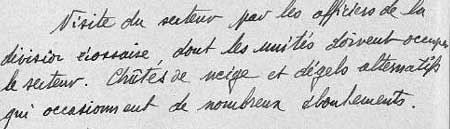 Visite du secteur par les officiers de la
division écossaise, dont les unités doivent occuper
le secteur. Chûtes de neige et dégels alternatifs
qui occasionnent de nombreux éboulements.